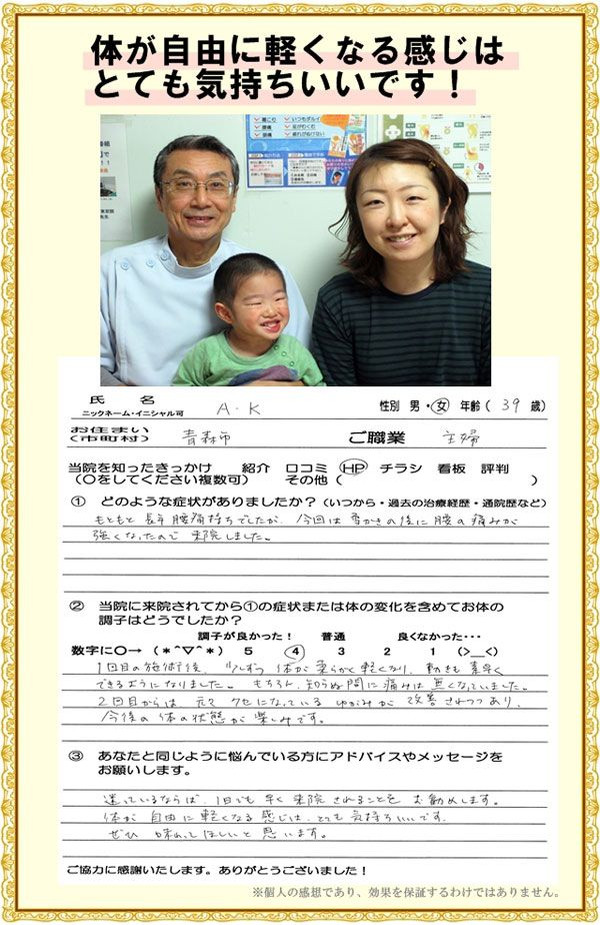 体が自由に軽くなる感じは
とても気持ちいいです！
氏　名
ニックネーム・イニシャル可
A・K
性別 男・女 年齢（ 39 歳）
お住まい
（市町村）
青森市
ご職業　主婦
当院を知ったきっかけ　紹介　口コミ　HP　チラシ　看板　評判
（○をしてください複数可）　その他（　　　）
① どのような症状がありましたか？（いつから・過去の治療経歴・通院歴など）
もともと長年腰痛持ちでしたが、今回は雪かきの後に腰の痛みが
強くなったので来院しました。
② 当院に来院されてから①の症状または体の変化を含めてお体の
調子はどうでしたか？
調子が良かった！　普通　良くなかった・・・
数字に○→（＊^▽^＊） 5　4　3　2　1（>__<）
1回目の施術後、少しずつ体が柔らかく軽くなり、動きも素早く
できるようになりました。もちろん、知らぬ間に痛みは無くなっていました。
2回目からは、元々クセになっているゆがみが改善されつつあり、
今後の体の状態が楽しみです。
③ あなたと同じように悩んでいる方にアドバイスやメッセージを
お願いします。
迷っているならば、1日でも早く来院されることをお勧めします。
体が自由に軽くなる感じは、とても気持ちいいです。
ぜひ味わってほしいと思います。
ご協力に感謝いたします。ありがとうございました！
※個人の感想であり、効果を保証するわけではありません。